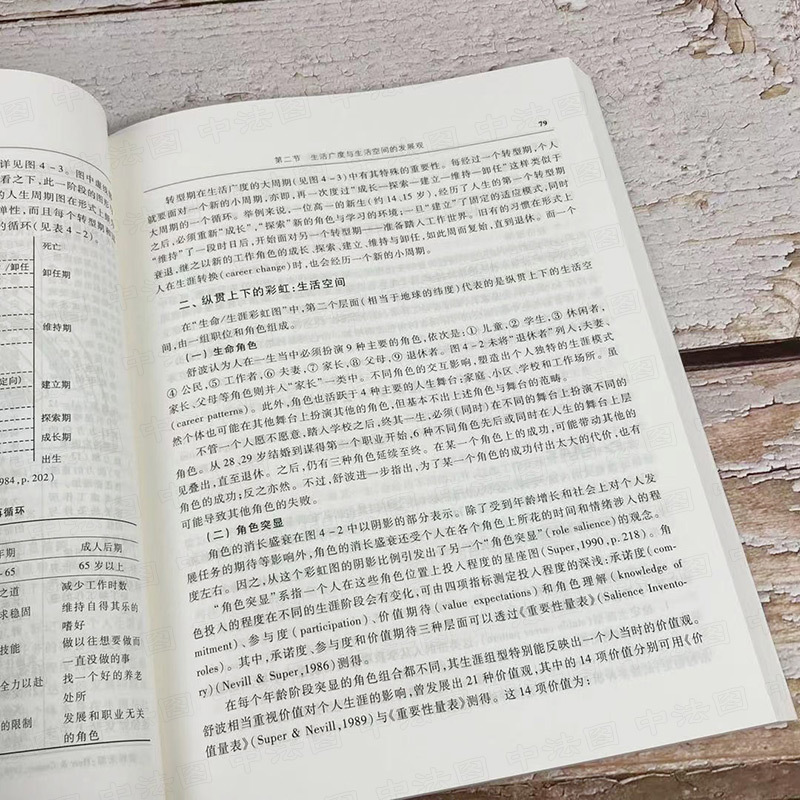 详见图4-3。图中最
看之下,此一阶段的图形
的人生周期图在形式上
弹性,而且每个转型期
的循环(见表4-2)。
死亡
/卸任
卸任期
维持期
定向)
建立期
探索期
成长期
出生
984, p. 202)
循环
年期
成人后期
-65
65岁以上
之道
减少工作时数
求稳固
维持自得其乐的
嗜好
技能
做以往想要做而
一直没做的事
全力以赴
找一个好的养老
处所
的限制
发展和职业无关
的角色
79
第二节 生活广度与生活空间的发展观
转型期在生活广度的大周期(见图4-3)中有其特殊的重要性。每经过一个转型期,个人
就要面对一个新的小周期,亦即,再一次度过“成长—探索—建立—维持—卸任”这样类似于
大周期的一个循环。举例来说,一位高一的新生(约14、15岁),经历了人生的第一个转型期
之后,必须重新“成长”,“探索”新的角色与学习的环境;一旦“建立”了固定的适应模式,同时
“维持”了一段时日后,开始面对另一个转型期——准备踏入工作世界。旧有的习惯在形式上
衰退,继之以新的工作角色的成长、探索、建立、维持与卸任,如此周而复始,直到退休。而一个
人在生涯转换(career change)时,也会经历一个新的小周期。
二、纵贯上下的彩虹:生活空间
在“生命/生涯彩虹图”中,第二个层面(相当于地球的纬度)代表的是纵贯上下的生活空
间,由一组职位和角色组成。
(一) 生命角色
舒波认为人在一生当中必须扮演9种主要的角色,依次是:① 儿童,② 学生,③ 休闲者,
④ 公民,⑤ 工作者,⑥ 夫妻,⑦ 家长,⑧ 父母,⑨ 退休者。图4-2未将“退休者”列入;夫妻、
家长、父母等角色则并入“家长”一类中。不同角色的交互影响,塑造出个人独特的生涯模式
(career patterns)。此外,角色也活跃于4种主要的人生舞台:家庭、小区、学校和工作场所。虽
然个体也可能在其他舞台上扮演其他的角色,但基本不出上述角色与舞台的范畴。
不管一个人愿不愿意,踏入学校之后,终其一生,必须(同时)在不同的舞台上扮演不同的
角色。从28、29岁结婚到谋得第一个职业开始,6种不同角色先后或同时在人生的舞台上层
见叠出,直至退休。之后,仍有三种角色延续至终。在某一个角色上的成功,可能带动其他的
角色的成功;反之亦然。不过,舒波进一步指出,为了某一个角色的成功付出太大的代价,也有
可能导致其他角色的失败。
(二) 角色突显
角色的消长盛衰在图4-2中以阴影的部分表示。除了受到年龄增长和社会上对个人发
展任务的期待等影响外,角色的消长盛衰还受个人在各个角色上所花的时间和情绪涉入的程
度左右。因之,从这个彩虹图的阴影比例引发出了另一个“角色突显”(role salience)的观念。
“角色突显”系指一个人在这些角色位置上投入程度的星座图(Super,1990,p.218)。角
色投入的程度在不同的生涯阶段会有变化,可由四项指标测定投入程度的深浅:承诺度(com-
mitment)、参与度(participation)、价值期待(value expectations)和角色理解(knowledge of
roles)。其中,承诺度、参与度和价值期待三种层面可以透过《重要性量表》(Salience Invento-
ry)(Nevill & Super,1986)测得。
在每个年龄阶段突显的角色组合都不同,其生涯组型特别能反映出一个人当时的价值观。
舒波相当重视价值对个人生涯的影响,曾发展出21种价值观,其中的14项价值分别可用《价
值量表》(Super & Nevill,1989)与《重要性量表》测得。这14项价值为: